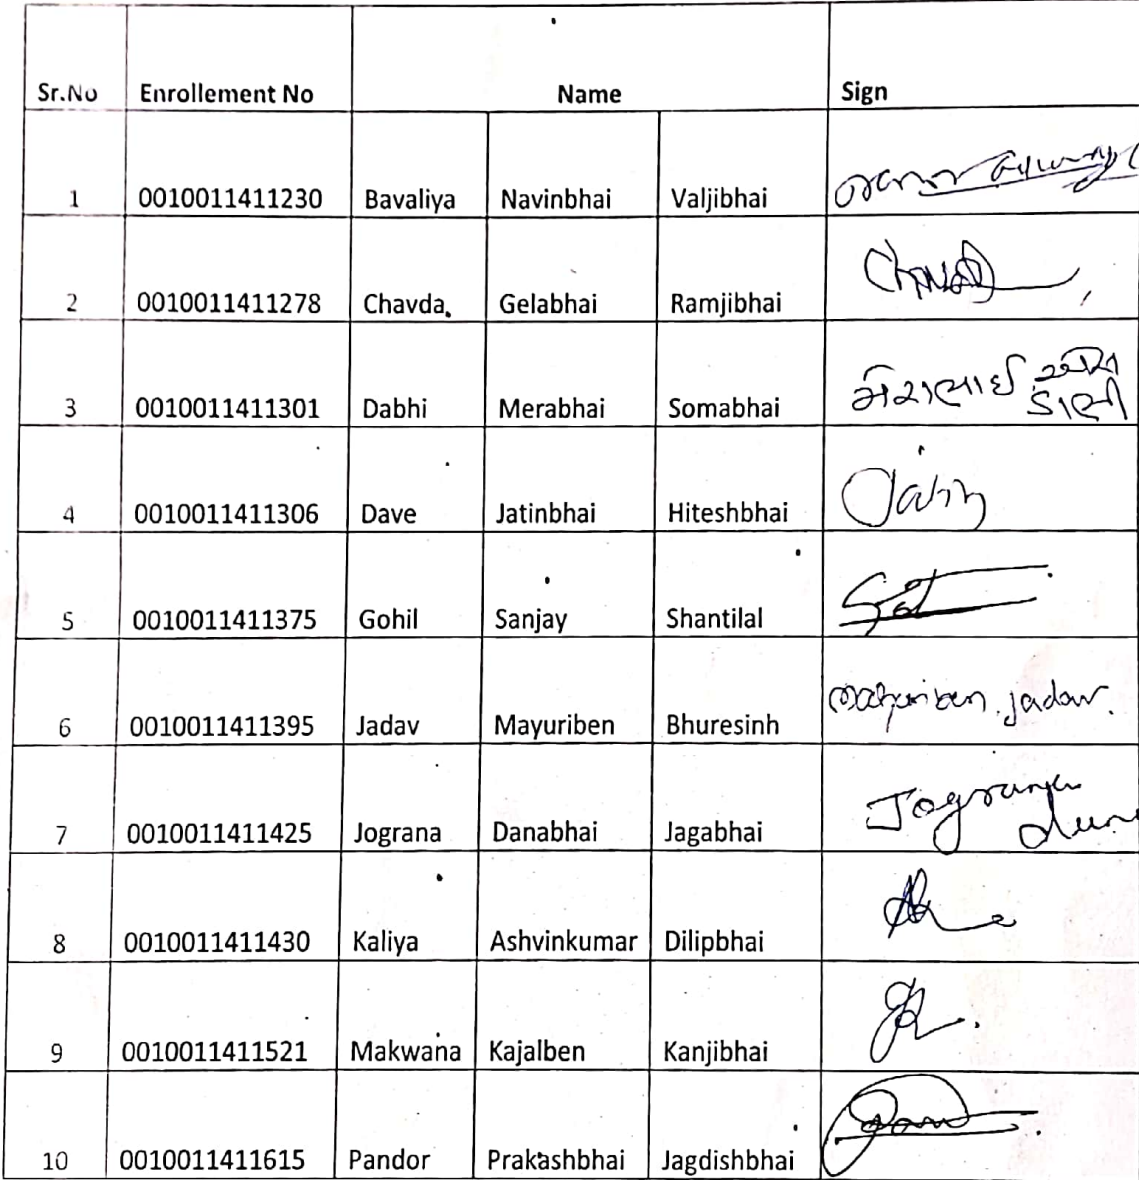 Sr.No Enrollement No Name Sign
1 0010011411230 Bavaliya Navinbhai Valjibhai
2 0010011411278 Chavda Gelabhai Ramjibhai
3 0010011411301 Dabhi Merabhai Somabhai મેરાભાઈ ડાભી
4 0010011411306 Dave Jatinbhai Hiteshbhai Jatin
5 0010011411375 Gohil Sanjay Shantilal
6 0010011411395 Jadav Mayuriben Bhuresinh mayuriben. jadav.
7 0010011411425 Jograna Danabhai Jagabhai Jograna
8 0010011411430 Kaliya Ashvinkumar Dilipbhai
9 0010011411521 Makwana Kajalben Kanjibhai
10 0010011411615 Pandor Prakashbhai Jagdishbhai